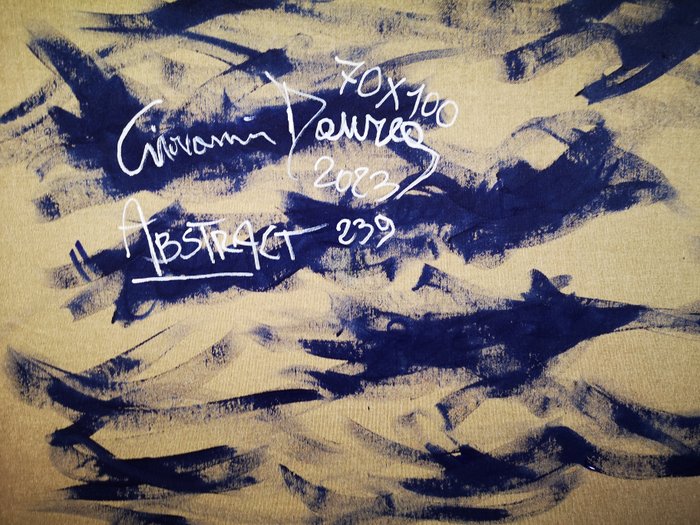 70x100
Giovanni
2023
ABSTRACT 239